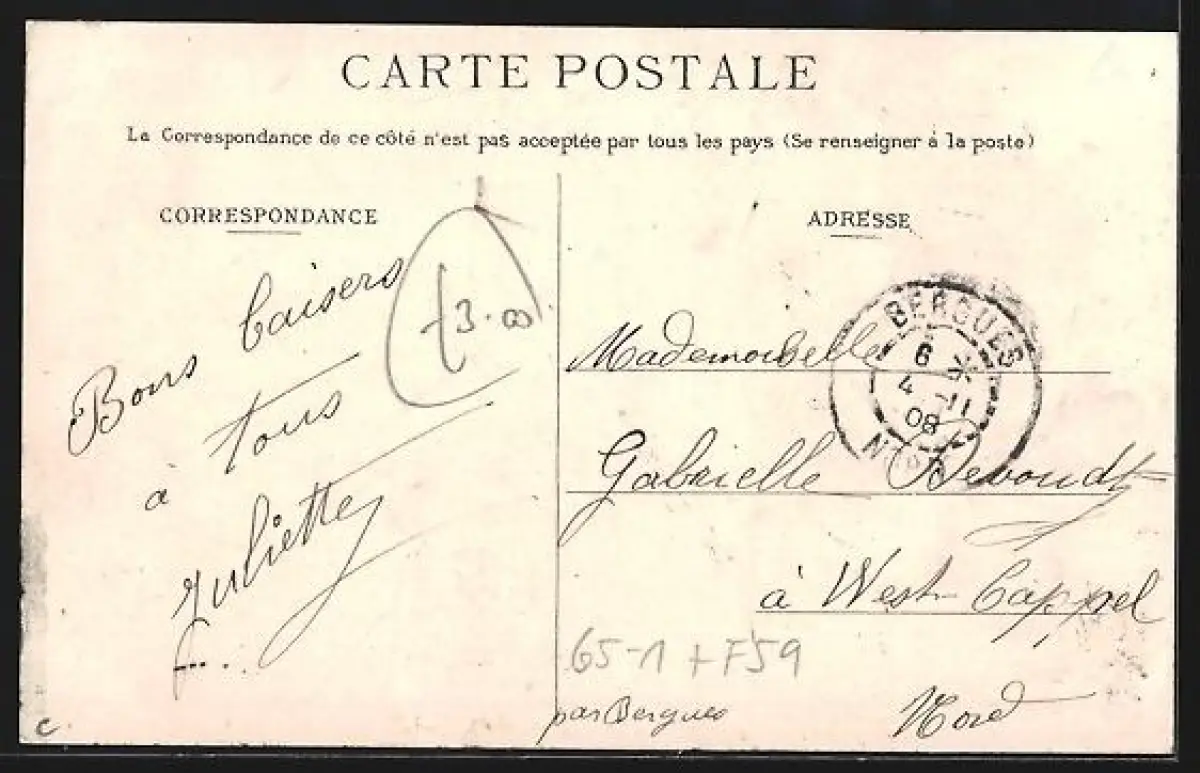 CARTE POSTALE
La Correspondance de ce côté n'est pas acceptée par tous les pays (Se renseigner à la poste)
CORRESPONDANCE
Bons baisers
à tous
Juliette
3.00
ADRESSE
BERGUES
6
4 -11
08
NORD
Mademoiselle
Gabrielle Devondt
à West-Cappel
65-1 + F59
par Bergues
Nord
c